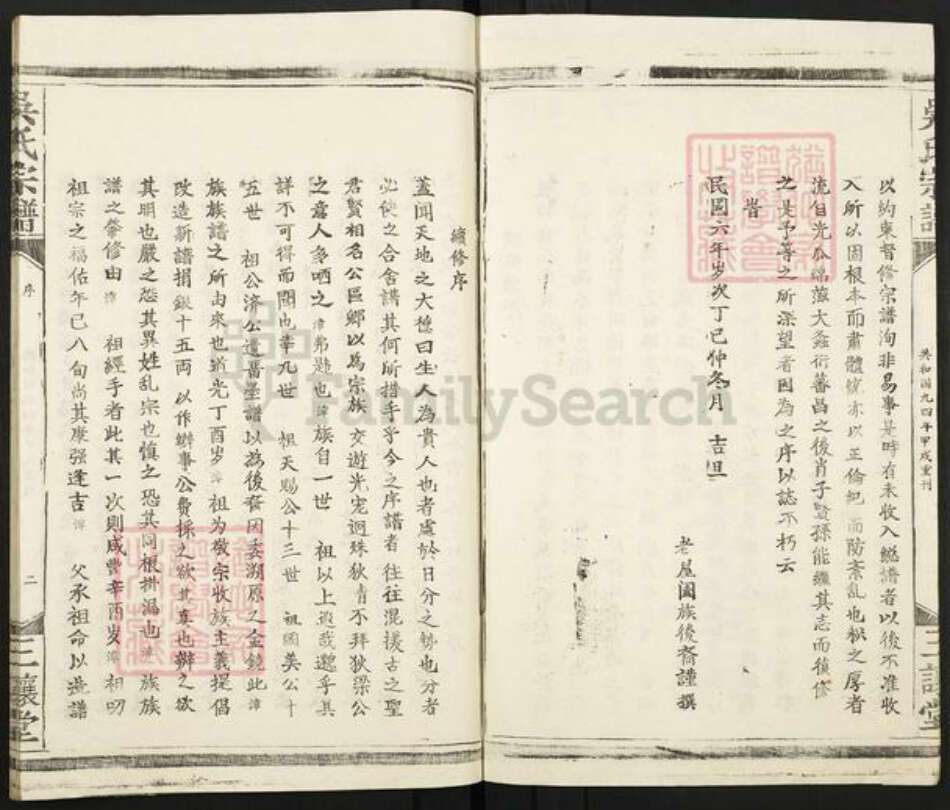 以約束督修宗譜洵非易事是時有未收入總譜者以後不准收
入所以固根本而肅體統亦以正倫紀而防紊亂也枞之厚者
流自光瓜綿瓞大螽衍蕃昌之後肖子賢孫能繼其志而復修
之是予等之所深望者因為之序以誌不朽云
旹
民國六年岁次丁巳仲冬月 吉旦
老屋閤族後裔謹撰
共和国九四年甲戌重刊
吳氏宗譜
三讓堂
續修序
蓋聞天地之大德曰生人為貴人也者處於日分之勢也分者
必使之合舍譜其何所措手乎今之序譜者往往混援古之聖
君賢相名公區鄉以為宗族交遊光宠迥殊狄青不拜狄梁公
之意人多哂之 諱弗題也諱族自一世 祖以上遐哉邈乎其
詳不可得而聞也幸九世 祖天賜公十三世 祖國美公十
五世 祖公济公遺畱墨譜以為後裔因委溯原之金鏡此諱
族族譜之所由來也道光丁酉岁諱祖为敬宗收族主義提倡
改造新譜捐銀十五両以作辦事公費採之欲其真也辦之欲
其明也嚴之恐其異姓乱宗也慎之恐其同根拼漏也諱族族
譜之肇修由諱 祖經手者此其一次則咸豐辛酉岁諱祖叨
祖宗之福佑年已八旬尚其康强逢吉諱 父承祖命以遊譜
吳氏宗譜
序
二
三讓堂
FamilySearch